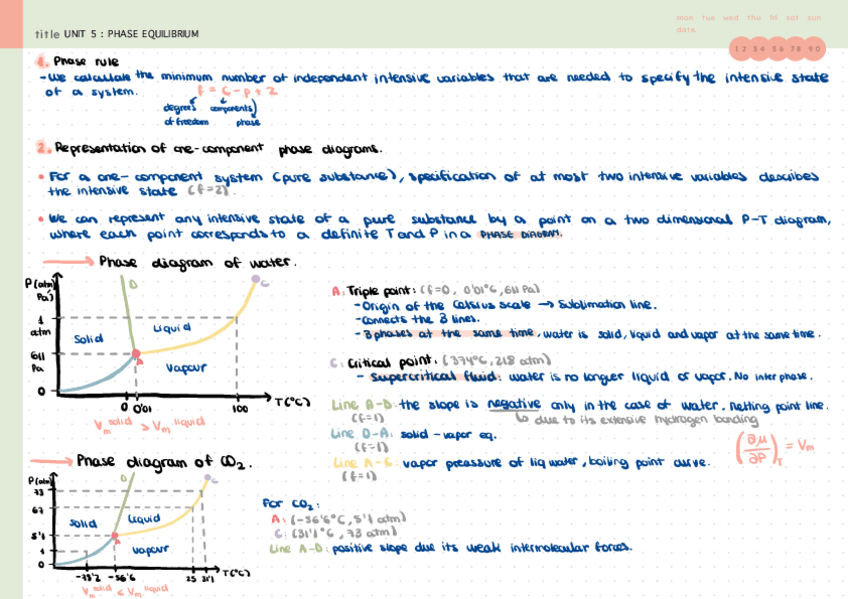 mon tue wed thu fri sat sun
title UNIT 5 : PHASE EQUILIBRIUM
date.
1 2 3 4 5 6 7 8 9 0
1. Phase rule
- We calculate the minimum number of independent intensive variables that are needed to specify the intensive state
of a system. f = c - p + 2
degrees of freedom
components
phase
2. Representation of one-component phase diagrams.
• For a one-component system (pure substance), specification of at most two intensive variables describes
the intensive state (f=2).
• We can represent any intensive state of a pure substance by a point on a two dimensional P-T diagram,
where each point corresponds to a definite T and P in a PHASE DIAGRAM.
Phase diagram of water.
P(atm)
Pa)
D
C
1
atm
Solid
Liquid
611
Pa
A
Vapour
0
0 0'01 100 T(°C)
Vm solid > Vm liquid
A: Triple point: (f=0, 0'01°C, 611 Pa)
- Origin of the Celsius scale → Sublimation line.
- Connects the 3 lines.
- 3 phases at the same time, water is solid, liquid and vapor at the same time.
C: Critical point. (374°C, 218 atm)
- Supercritical fluid: water is no longer liquid or vapor. No interphase.
Line A-D: the slope is negative only in the case of water. Melting point line.
(f=1) ↳ due to its extensive hydrogen bonding
Line O-A: solid-vapor eq.
(f=1)
Line A-C: vapor pressure of liq water, boiling point curve.
(f=1)
(∂μ/∂P)T = Vm
Phase diagram of CO2.
P(atm)
D
C
73
67
Solid
Liquid
5'1
A
1
Vapour
0
-78'2 -56'6 25 31'1 T(°C)
Vm solid < Vm liquid
For CO2:
A: (-56'6°C, 5'1 atm)
C: (31'1°C, 73 atm)
Line A-D: positive slope due its weak intermolecular forces.